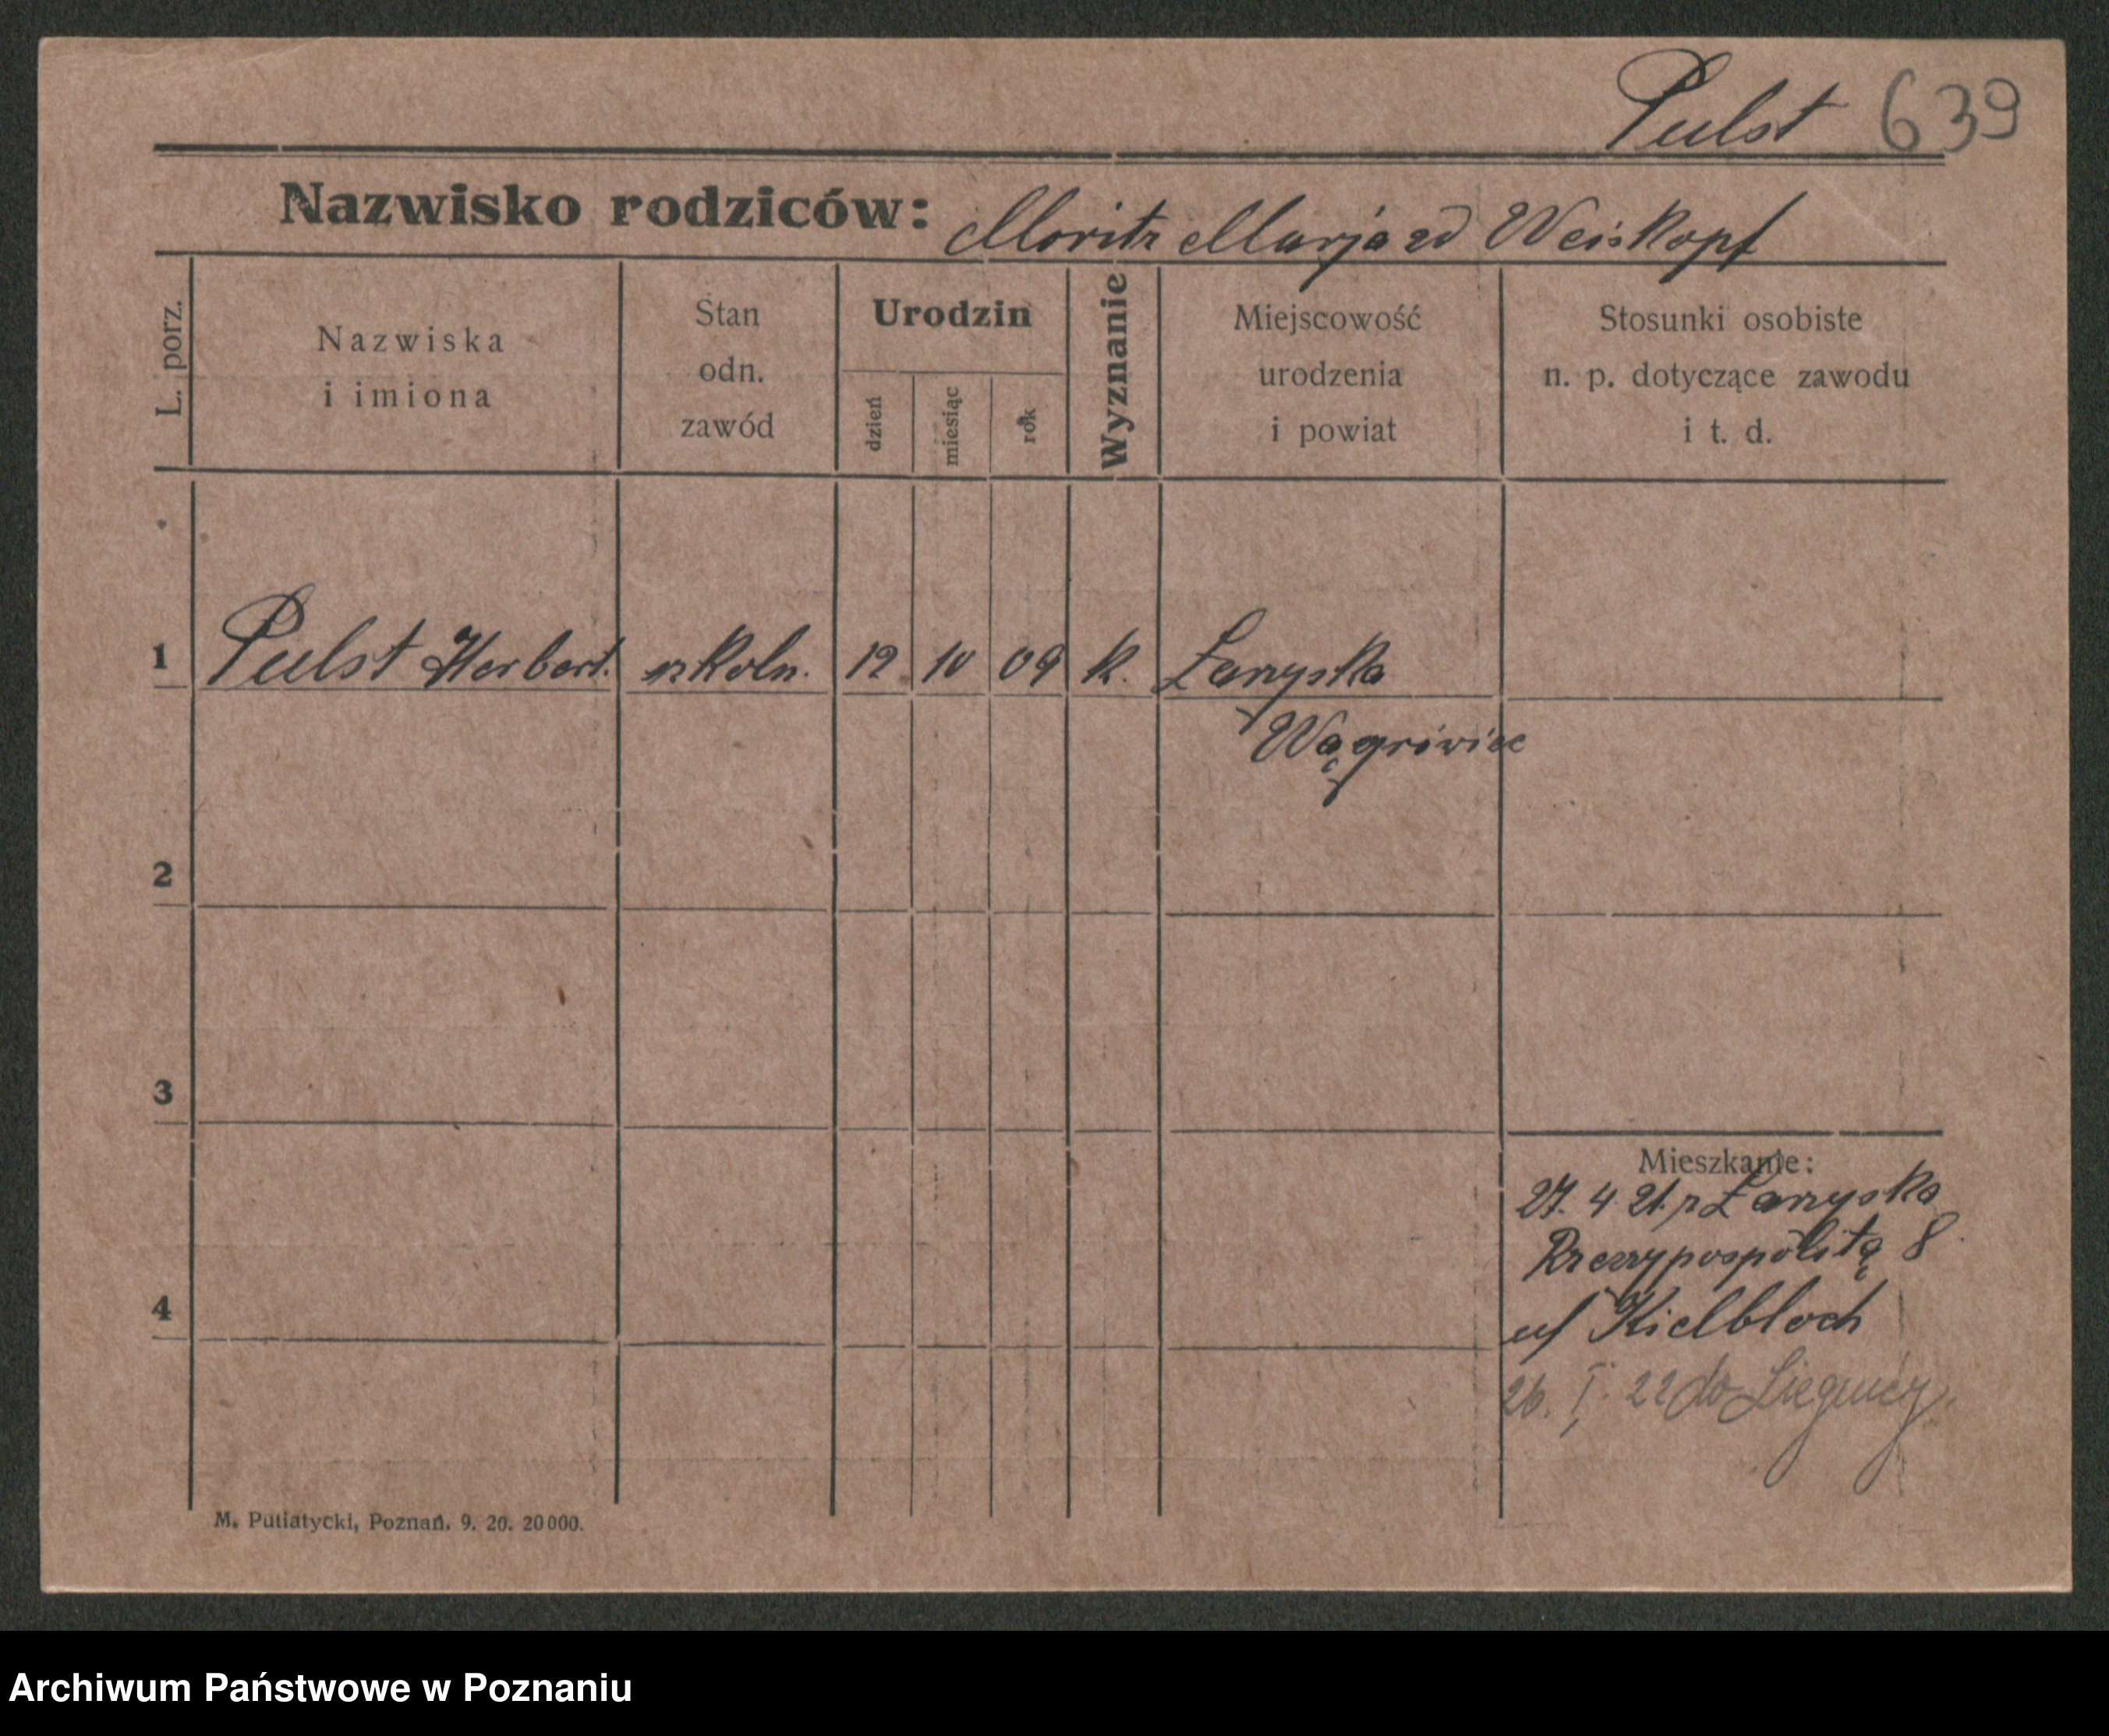 Pulst 639
Nazwisko rodziców: Moritz Marja zd Weiskopf
L. porz.
Nazwiska
i imiona
Stan
odn.
zawód
Urodzin
dzień
miesiąc
rok
Wyznanie
Miejscowość
urodzenia
i powiat
Stosunki osobiste
n. p. dotyczące zawodu
i t. d.
1 Pulst Herbert. szkoln. 12 10 09 k.
Wągrówiec
2
3
4
Mieszkanie:
27. 4. 21. z
Rzeczypospolitą 8
u/ Kielbloch
26. I. 22 do Liegnicy.
M. Putiatycki, Poznań. 9. 20. 20000.
Archiwum Państwowe w Poznaniu